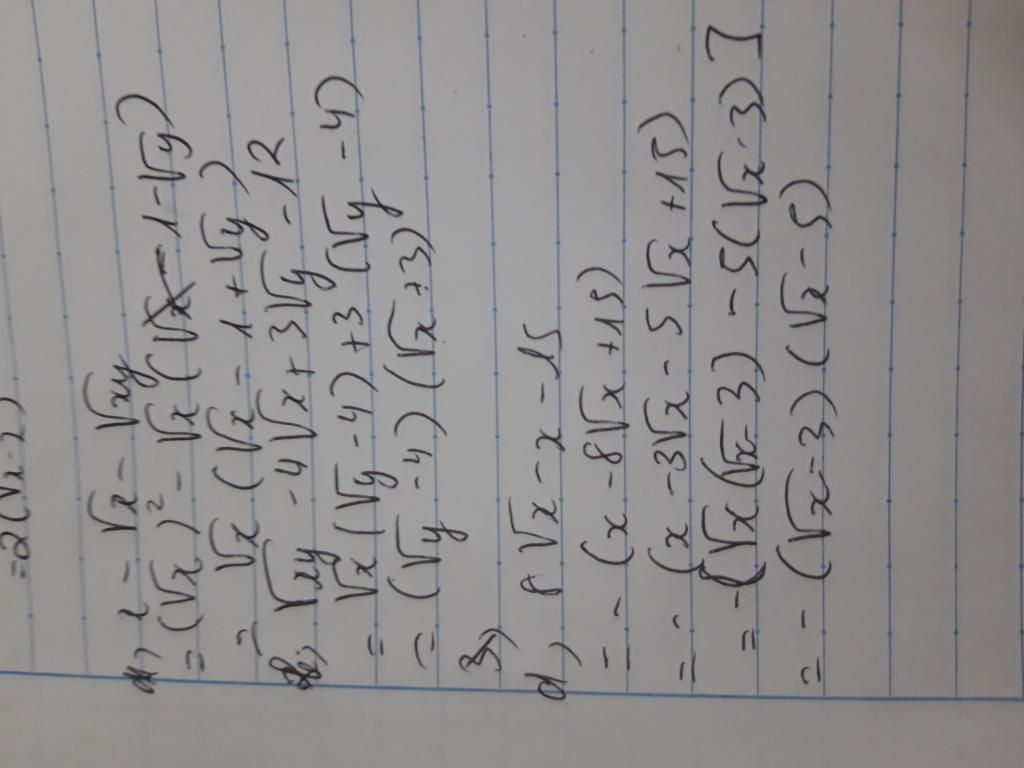 = 2(√x - 2)
x - √x - √xy
= (√x)² - √x (1 - √y)
= √x (√x - 1 + √y)
√xy - 4√x + 3√y - 12
= √x (√y - 4) + 3 (√y - 4)
= (√y - 4) (√x + 3)
3,
d, 8√x - x - 15
= - (x - 8√x + 15)
= - (x - 3√x - 5√x + 15)
= - [√x (√x - 3) - 5(√x - 3)]
= - (√x - 3) (√x - 5)